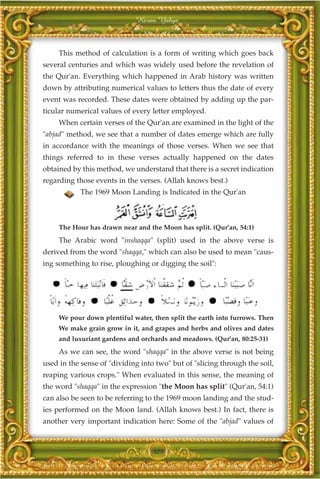 Harun Yahya
This method of calculation is a form of writing which goes back
several centuries and which was widely used before the revelation of
the Qur'an. Everything which happened in Arab history was written
down by attributing numerical values to letters thus the date of every
event was recorded. These dates were obtained by adding up the par-
ticular numerical values of every letter employed.
When certain verses of the Qur'an are examined in the light of the
"abjad" method, we see that a number of dates emerge which are fully
in accordance with the meanings of those verses. When we see that
things referred to in these verses actually happened on the dates
obtained by this method, we understand that there is a secret indication
regarding those events in the verses. (Allah knows best.)
The 1969 Moon Landing is Indicated in the Qur'an
اِقْتَرَبَتِ السَّاعَةُ وَانْشَقَّ الْقَمَرُ
The Hour has drawn near and the Moon has split. (Qur'an, 54:1)
The Arabic word "inshaqqa" (split) used in the above verse is
derived from the word "shaqqa," which can also be used to mean "caus-
ing something to rise, ploughing or digging the soil":
اَنَّا صَبَبْنَا الْمَاءَ صَبًّا ● ثُمَّ شَقَقْنَا الْاَرْضَ شَقًّا ● فَاَنْبَتْنَا فِيهَا حَبًّا ●
وَعِنَبًا وَقَضْبًا ● وَزَيْتُونًا وَنَخْلًا ● وَحَدَائِقَ غُلْبًا ● وَفَاكِهَةً وَاَبًّا
We pour down plentiful water, then split the earth into furrows. Then
We make grain grow in it, and grapes and herbs and olives and dates
and luxuriant gardens and orchards and meadows. (Qur'an, 80:25-31)
As we can see, the word "shaqqa" in the above verse is not being
used in the sense of "dividing into two" but of "slicing through the soil,
reaping various crops." When evaluated in this sense, the meaning of
the word "shaqqa" in the expression "the Moon has split" (Qur'an, 54:1)
can also be seen to be referring to the 1969 moon landing and the stud-
ies performed on the Moon land. (Allah knows best.) In fact, there is
another very important indication here: Some of the "abjad" values of